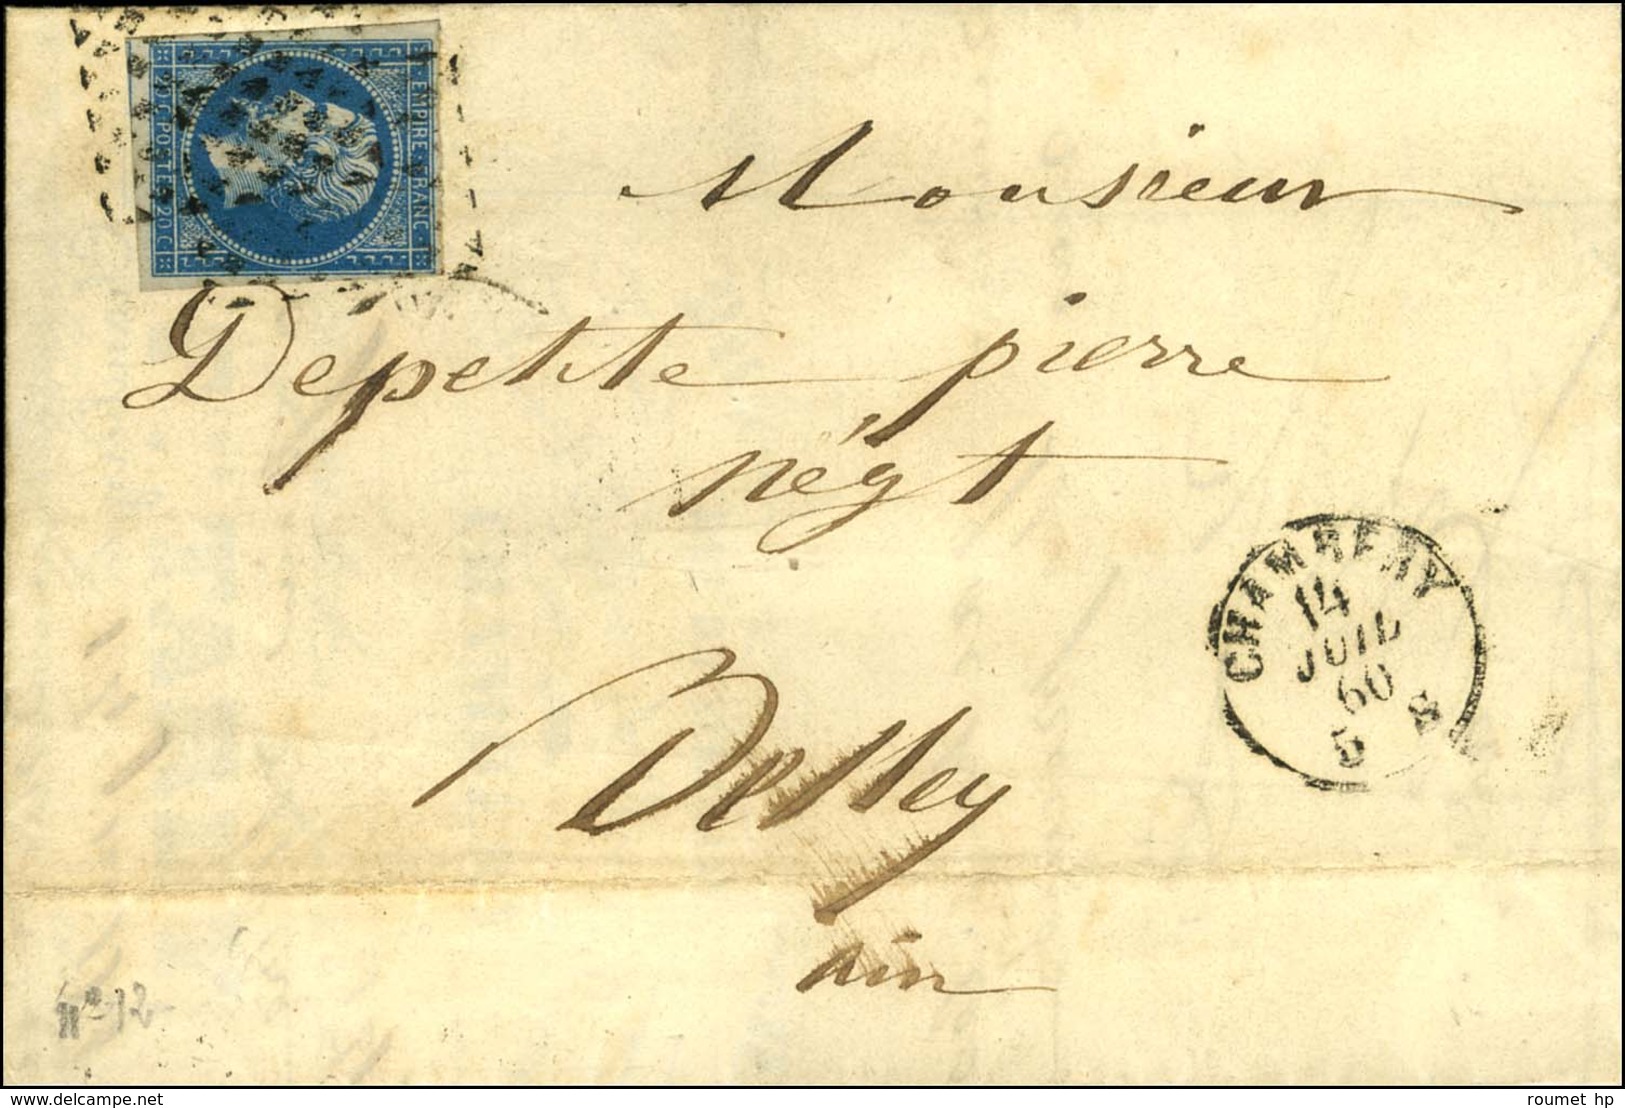 EMPIRE FRANC
20 C POSTES 20 C
Monsieur
Depetite pierre
négt
CHAMBERY
14
JUIL
60
5 S
Belley
ain
N° 12
www.delcampe.net
roumet hp